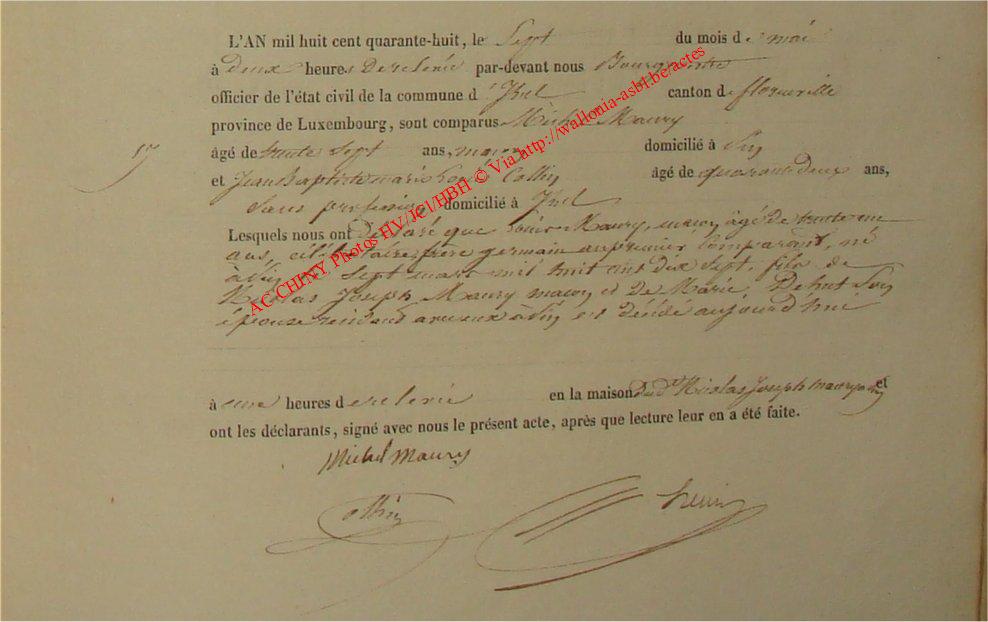 L'AN mil huit cent quarante-huit, le Sept du mois de mai
à deux heures de relevée par-devant nous Bourgmestre
officier de l'état civil de la commune d'Izel canton de florenville
province de Luxembourg, sont comparus Michel Maury
17
âgé de trente Sept ans, maçon domicilié à
et Jean Baptiste marie Collin âgé de quarante deux ans,
Sans profession domicilié à Izel
Lesquels nous ont déclaré que Louis Maury, maçon, âgé de trente un
ans, célibataire, frère germain au premier Comparant, né
à Sept mars mil huit cent dix Sept, fils de
Nicolas Joseph Maury maçon et de Marie Son
épouse résidant avec eux à est décédé aujourd'hui
à une heures de relevée en la maison dud. Nicolas Joseph maury et
ont les déclarants, signé avec nous le présent acte, après que lecture leur en a été faite.
Michel Maury
Collin
AC CHINY, Photos HV/JCl/HBH © Via http://wallonia-asbl.be/actes